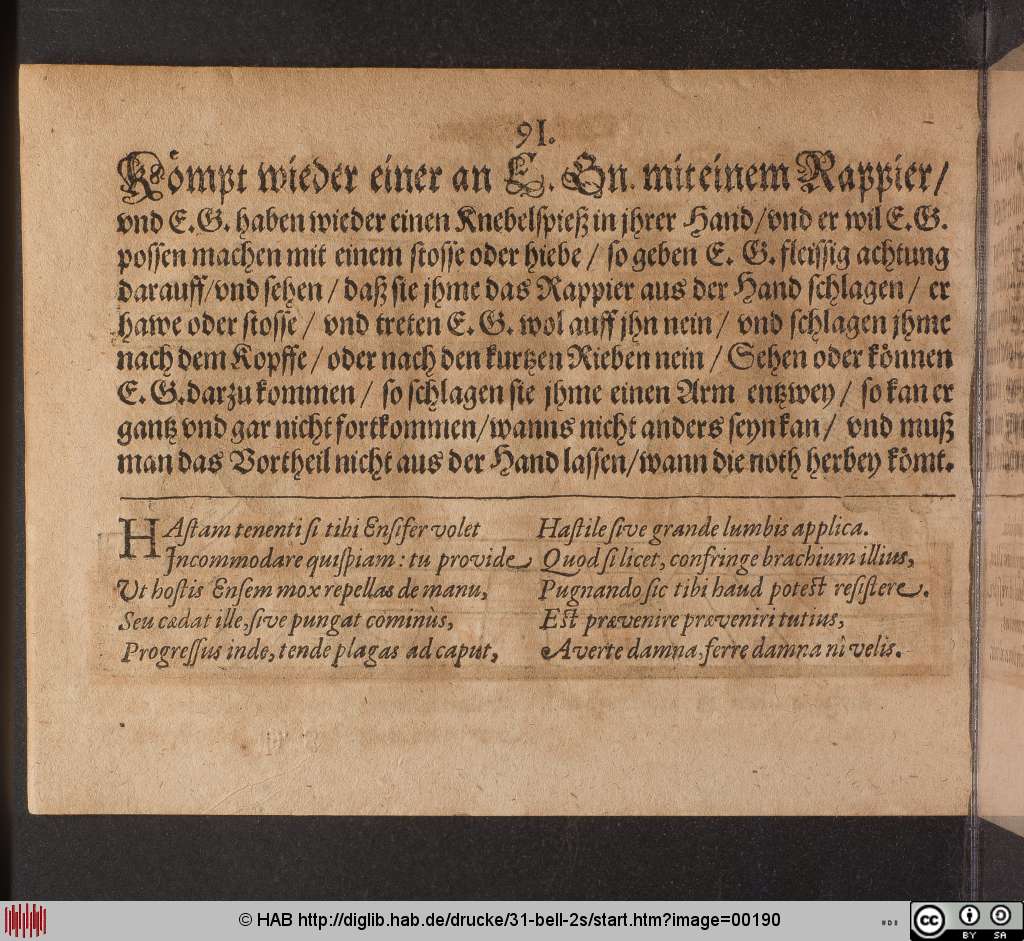 91.
Kömpt wieder einer an E. Gn. mit einem Rappier/
vnd E. G. haben wieder einen Knebelspieß in jhrer Hand/vnd er wil E. G.
possen machen mit einem stosse oder hiebe / so geben E. G. fleissig achtung
darauff/vnd sehen / daß sie jhme das Rappier aus der Hand schlagen / er
hawe oder stosse / vnd treten E. G. wol auff jhn nein / vnd schlagen jhme
nach dem Kopffe / oder nach den kurtzen Rieben nein / Sehen oder können
E. G. darzu kommen / so schlagen sie jhme einen Arm entzwey / so kan er
gantz vnd gar nicht fortkommen/wanns nicht anders seyn kan / vnd muß
man das Vortheil nicht aus der Hand lassen/wann die noth herbey kömt.
HAstam tenenti si tibi Ensifer volet
Incommodare quispiam: tu provide
Ut hostis Ensem mox repellas de manu,
Seu cædat ille, sive pungat cominùs,
Progressus inde, tende plagas ad caput,
Hastile sive grande lumbis applica.
Quod si licet, confringe brachium illius,
Pugnando sic tibi haud potest resistere.
Est prævenire præveniri tutius,
Averte damna, ferre damna nî velis.
© HAB http://diglib.hab.de/drucke/31-bell-2s/start.htm?image=00190
cc
BY SA